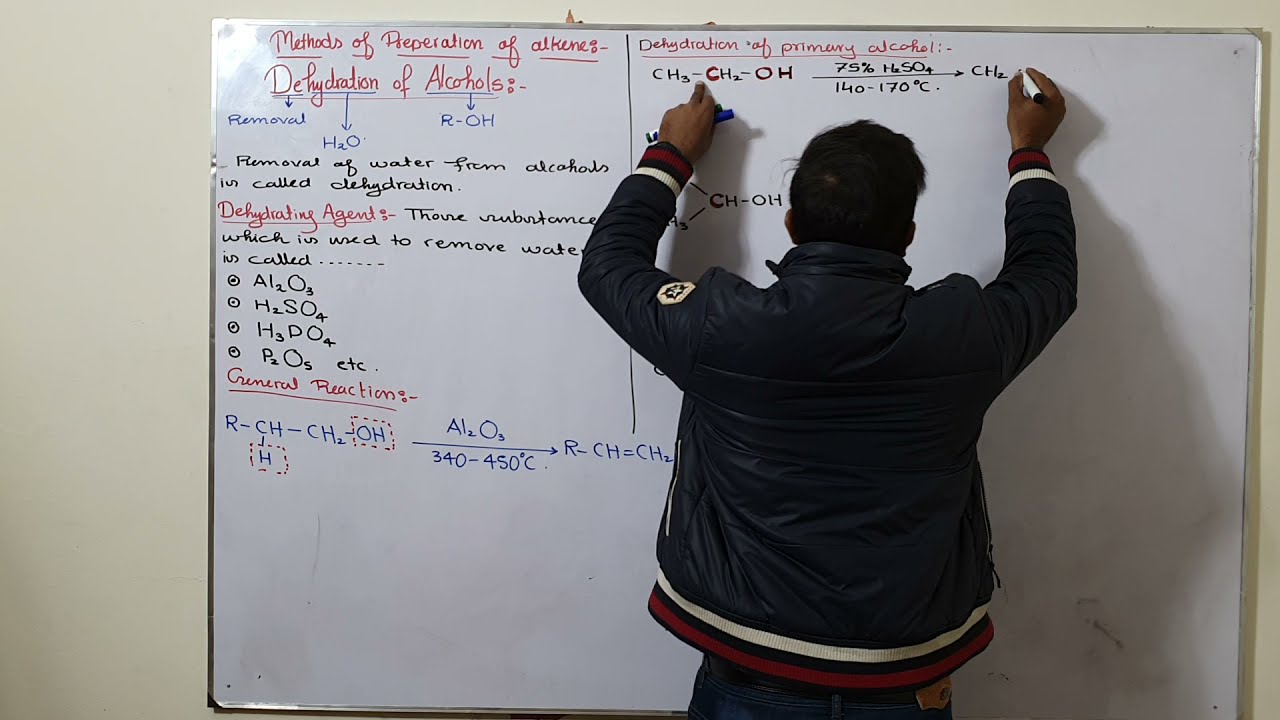 Methods of Preperation of alkene:-
Dehydration of Alcohols:-
Removal
R-OH
H₂O
Removal of water from alcohols
is called dehydration.
Dehydrating Agent:- Those substance
which is used to remove water
is called .......
Al₂O₃
H₂SO₄
H₃PO₄
P₂O₅ etc.
General Reaction:-
R-CH-CH₂-OH
H
Al₂O₃
340-450°C.
R-CH=CH₂
Dehydration of primary alcohol:-
CH₃-CH₂-OH
75% H₂SO₄
140-170°C.
CH₂
CH-OH